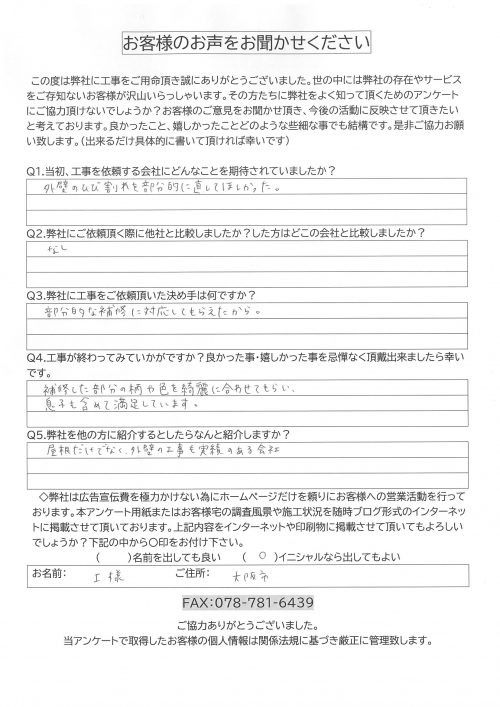 お客様のお声をお聞かせください
この度は弊社に工事をご用命頂き誠にありがとうございました。世の中には弊社の存在やサービス
をご存知ないお客様が沢山いらっしゃいます。その方たちに弊社をよく知って頂くためのアンケート
にご協力頂けないでしょうか？お客様のご意見をお聞かせ頂き、今後の活動に反映させて頂きたい
と考えております。良かったこと、嬉しかったことどのような些細な事でも結構です。是非ご協力お願
い致します。（出来るだけ具体的に書いて頂ければ幸いです）
Q1.当初、工事を依頼する会社にどんなことを期待されていましたか？
外壁のひび割れを部分的に直してほしかった。
Q2.弊社にご依頼頂く際に他社と比較しましたか？した方はどこの会社と比較しましたか？
なし
Q3.弊社に工事をご依頼頂いた決め手は何ですか？
部分的な補修に対応してもらえたから。
Q4.工事が終わってみていかがですか？良かった事・嬉しかった事を忌憚なく頂戴出来ましたら幸い
です。
補修した部分の柄や色を綺麗に合わせてもらい、
息子も含めて満足しています。
Q5.弊社を他の方に紹介するとしたらなんと紹介しますか？
屋根だけでなく、外壁の工事も実績のある会社
◇弊社は広告宣伝費を極力かけない為にホームページだけを頼りにお客様への営業活動を行って
おります。本アンケート用紙またはお客様宅の調査風景や施工状況を随時ブログ形式のインターネッ
トに掲載させて頂いております。上記内容をインターネットや印刷物に掲載させて頂いてもよろしい
でしょうか？下記の中から〇印をお付け下さい。
（　　）名前を出しても良い　（　〇　）イニシャルなら出してもよい
お名前：　I 様　ご住所：　大阪市
FAX:078-781-6439
ご協力ありがとうございました。
当アンケートで取得したお客様の個人情報は関係法規に基づき厳正に管理致します。